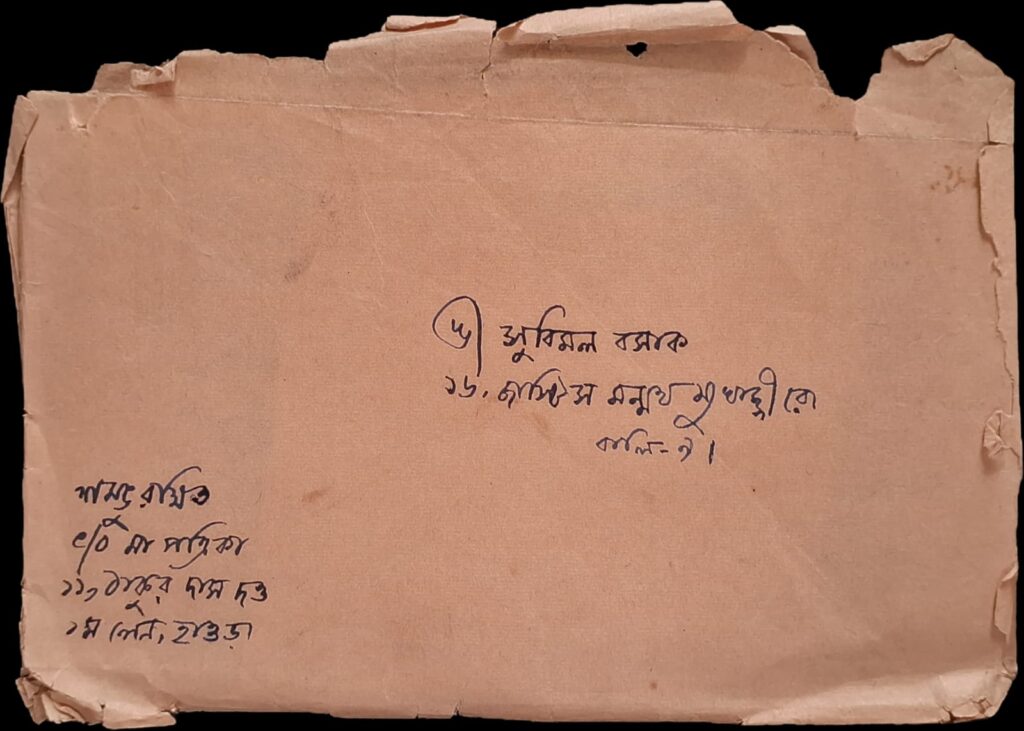 সুবিমল বসাক
১৬, জাস্টিস মন্মথ মুখার্জ্জী রো
কলি-৯।
শম্ভু রক্ষিত
c/o মা পত্রিকা
১১, ঠাকুর দাস দত্ত
১ম লেন, হাওড়া